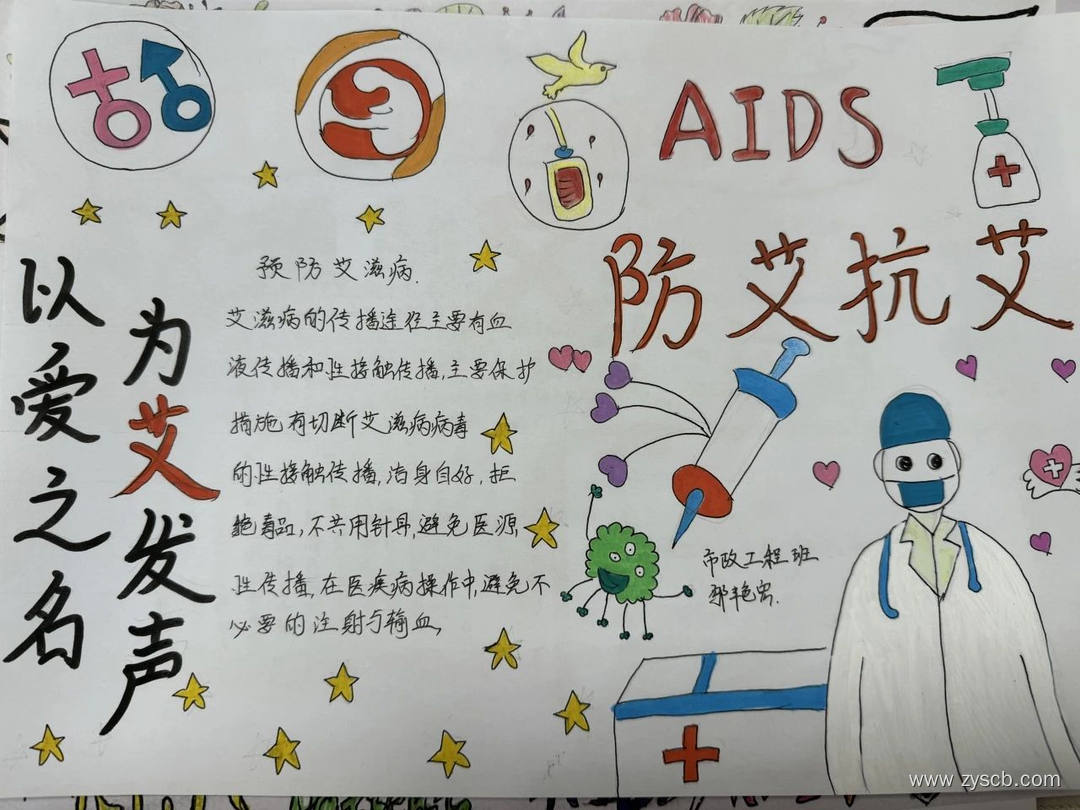 AIDS
防艾抗艾
以爱之名
为艾发声
预防艾滋病.
艾滋病的传播途径主要有血
液传播和性接触传播,主要保护
措施有切断艾滋病病毒
的性接触传播,洁身自好,拒
绝毒品,不共用针具,避免医源
性传播,在医疾病操作中,避免不
必要的注射与输血,
市政工程班
www.zyscb.com